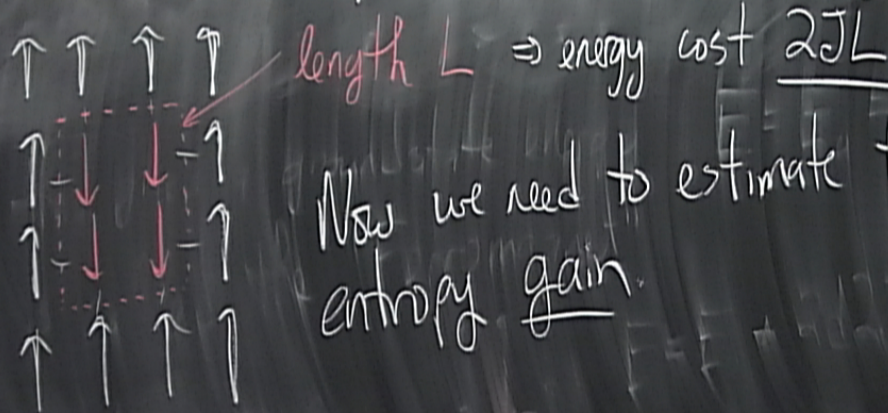 length L ⇒ energy cost 2JL
Now we need to estimate
entropy gain.